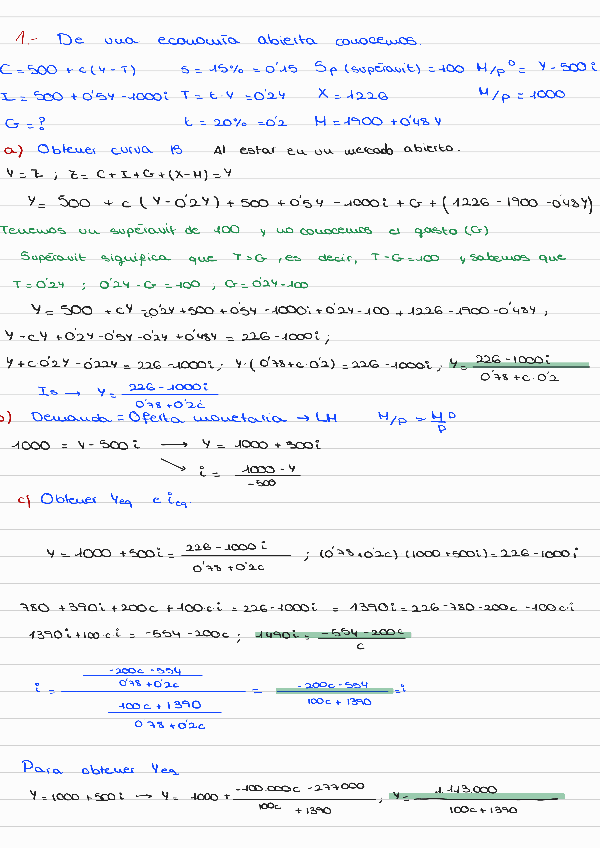 1.- De una economía abierta conocemos.
C=500 + c(Y-T) s=15%=0'15 Sp (superavit)=100 M/P^D = Y-500i
I=500+0'5Y-1000i T=t·Y=0'2Y X=1226 M/P=1000
G=? t=20%=0'2 M=1900+0'48Y
a) Obtener curva IS Al estar en un mercado abierto.
Y=Z ; Z= C+I+G+(X-M)=Y
Y= 500 + c (Y-0'2Y)+500+0'5Y-1000i+G+(1226-1900-0'48Y)
Tenemos un superavit de 100 y no conocemos el gasto (G)
Superavit significa que T>G, es decir, T-G=100 y sabemos que
T=0'2Y ; 0'2Y-G=100 , G=0'2Y-100
Y=500+cY-0'2Y+500+0'5Y-1000i+0'2Y-100+1226-1900-0'48Y ,
Y-cY+0'2Y-0'5Y-0'2Y+0'48Y=226-1000i ;
Y+c·0'2Y-0'22Y=226-1000i ; Y·(0'78+c·0'2)=226-1000i , Y= 226-1000i / 0'78+c·0'2
IS → Y= 226-1000i / 0'78+0'2c
b) Demanda = Oferta monetaria → LM M/P = M^D/P
1000 = Y-500i → Y= 1000+500i
→ i= 1000-Y / -500
c) Obtener Yeq e ieq.
Y=1000+500i= 226-1000i / 0'78+0'2c ; (0'78+0'2c)(1000+500i)=226-1000i
780 +390i+200c+100·c·i=226-1000i = 1390i=226-780-200c-100c·i
1390i+100·c·i= -554-200c ; 1490i= -554-200c / c
i= -200c-554 / 0'78+0'2c / 100c+1390 / 0'78+0'2c = -200c-554 / 100c+1390 =i
Para obtener Yeq
Y=1000+500i → Y= 1000+ -100.000c-277000 / 100c+1390 ; Y= 1.113.000 / 100c+1390